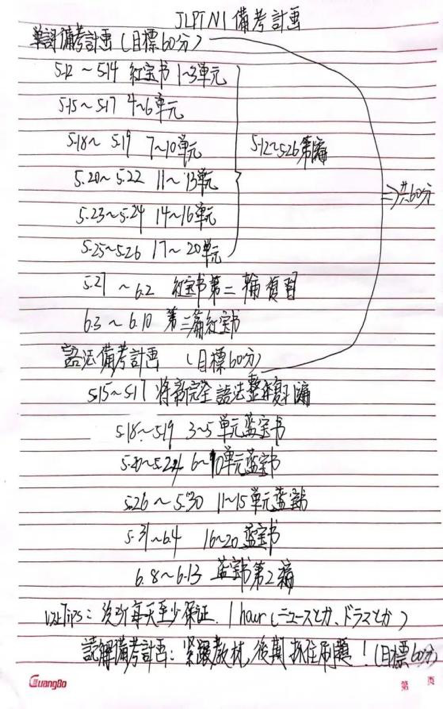 JLPTN1備考計画
単詞備考計画(目標60分)
5.12～5.14 红宝书 1-3单元
5.15～5.17 4～6单元
5.18～5.19 7～10单元
5.20～5.22 11～13单元
5.12～5.26第一遍
⇒共60分
5.23～5.24 14～16单元
5.25～5.26 17～20单元
5.27～6.2 红宝书第二轮復習
6.3～6.10 第三遍红宝书
語法備考計画 (目標60分)
5.15～5.17 将新完全語法整本刷1遍
5.18～5.19 3～5单元蓝宝书
5.20～5.24 6～10单元蓝宝书
5.26～5.30 11～15单元蓝宝书
5.31～6.4 16～20蓝宝书
6.8～6.13 蓝宝书第2遍
Tips：每天至少保证 1 hour(ニュースとか、ドラマとか)
読解備考計画：紧跟教材,後期抓住刷題！(目標60分)
GuangBo
第 页